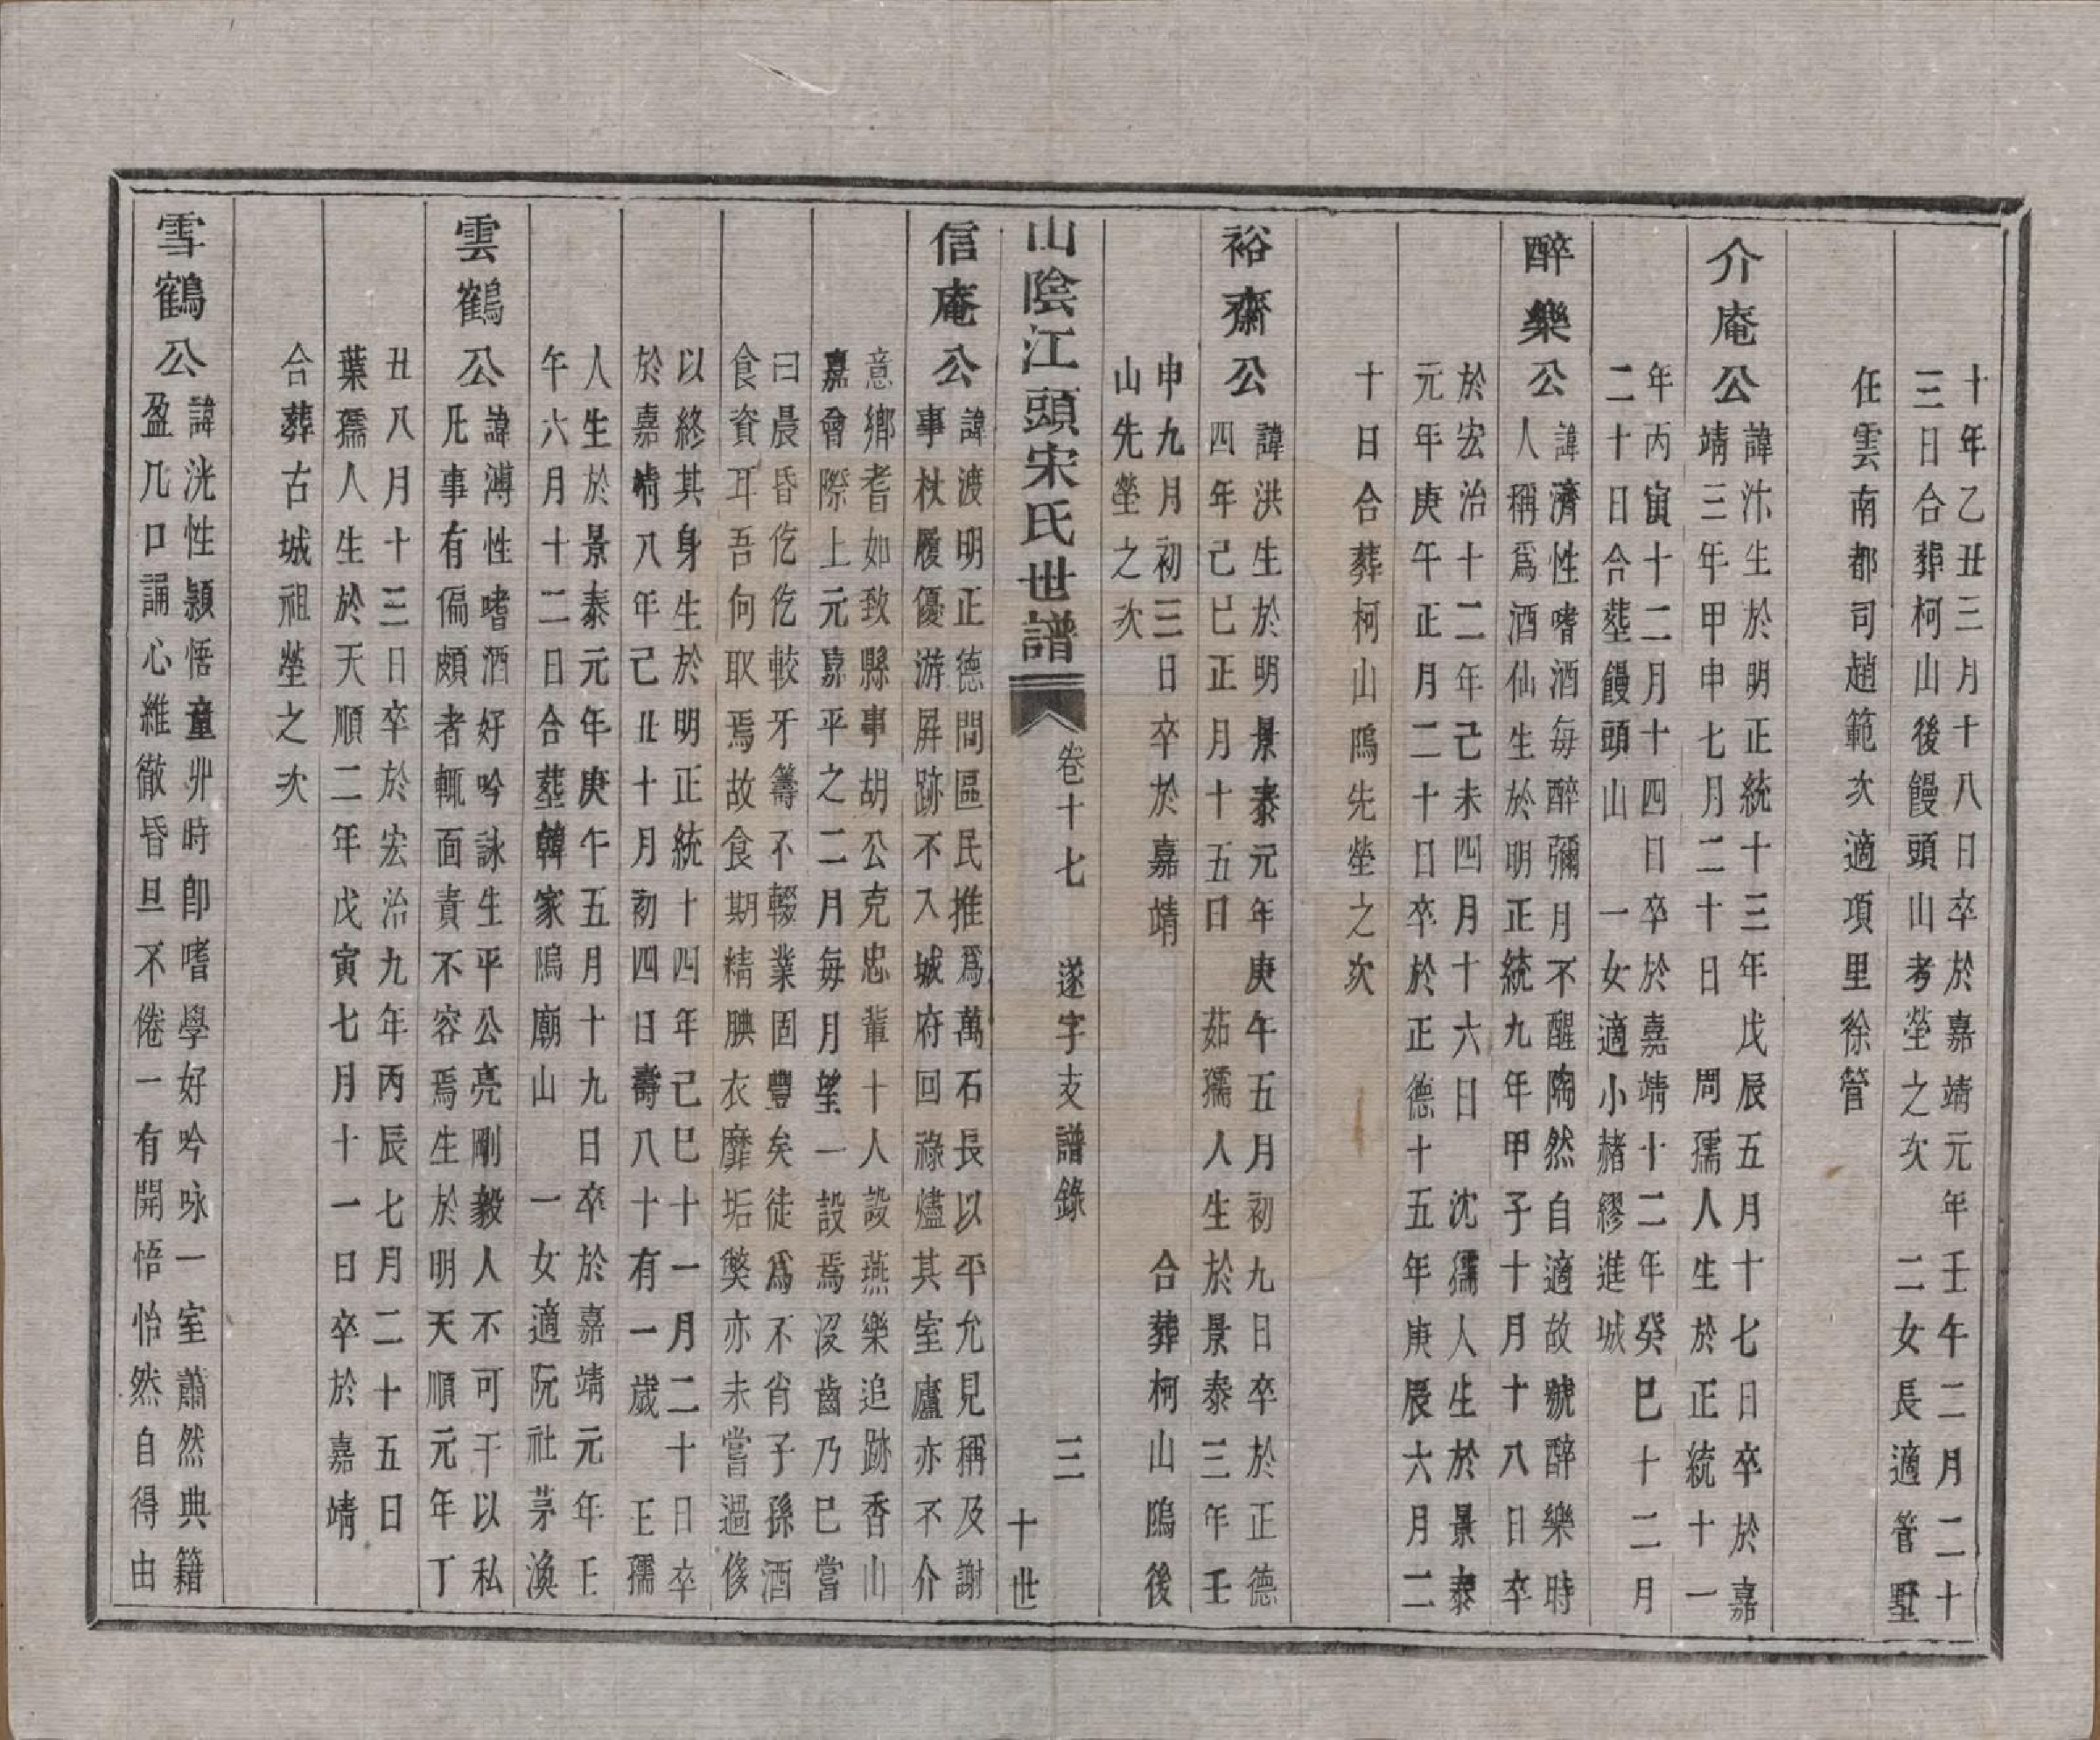 十年乙丑三月十八日卒於嘉靖元年壬午二月二十
三日合葬柯山後饅頭山考塋之次　二女長適管墅
任雲南都司趙範次適項里徐管
介庵公
諱汴生於明正統十三年戊辰五月十七日卒於嘉
靖三年甲申七月二十日　周孺人生於正統十一
年丙寅十二月十四日卒於嘉靖十二年癸巳十二月
二十日合塟饅頭山　一女適小赭繆進城
醉樂公
諱濟性嗜酒每醉彌月不醒陶然自適故號醉樂時
人稱爲酒仙生於明正統九年甲子十月十八日卒
於宏治十二年己未四月十六日　沈孺人生於景泰
元年庚午正月二十日卒於正德十五年庚辰六月二
十日合葬柯山隖先塋之次
裕齋公
諱洪生於明景泰元年庚午五月初九日卒於正德
四年己巳正月十五日　茹孺人生於景泰三年壬
申九月初三日卒於嘉靖　合葬柯山隖後
山先塋之次
山陰江頭宋氏世譜
卷十七　遂字支譜錄　三
十世
信庵公
諱渡明正德間區民推爲萬石長以平允見稱及謝
事杖履優游屏跡不入城府回祿燼其室廬亦不介
意鄉耆如致縣事胡公克忠輩十人設燕樂追跡香山
嘉會際上元嘉平之二月每月望一設焉沒齒乃已嘗
曰晨昏仡仡較牙籌不輟業固豐矣徒爲不肖子孫酒
食資耳吾何取焉故食期精腆衣靡垢獘亦未嘗過侈
以終其身生於明正統十四年己巳十一月二十日卒
於嘉靖八年己丑十月初四日壽八十有一歲　王孺
人生於景泰元年庚午五月十九日卒於嘉靖元年壬
午六月十二日合塟韓家隖廟山　一女適阮社茅渙
雲鶴公
諱溥性嗜酒好吟詠生平公亮剛毅人不可干以私
凡事有偏頗者輒面責不容焉生於明天順元年丁
丑八月十三日卒於宏治九年丙辰七月二十五日
葉孺人生於天順二年戊寅七月十一日卒於嘉靖
合葬古城祖塋之次
雪鶴公
諱洸性頴悟童丱時卽嗜學好吟咏一室蕭然典籍
盈几口誦心維徹昏旦不倦一有開悟怡然自得由